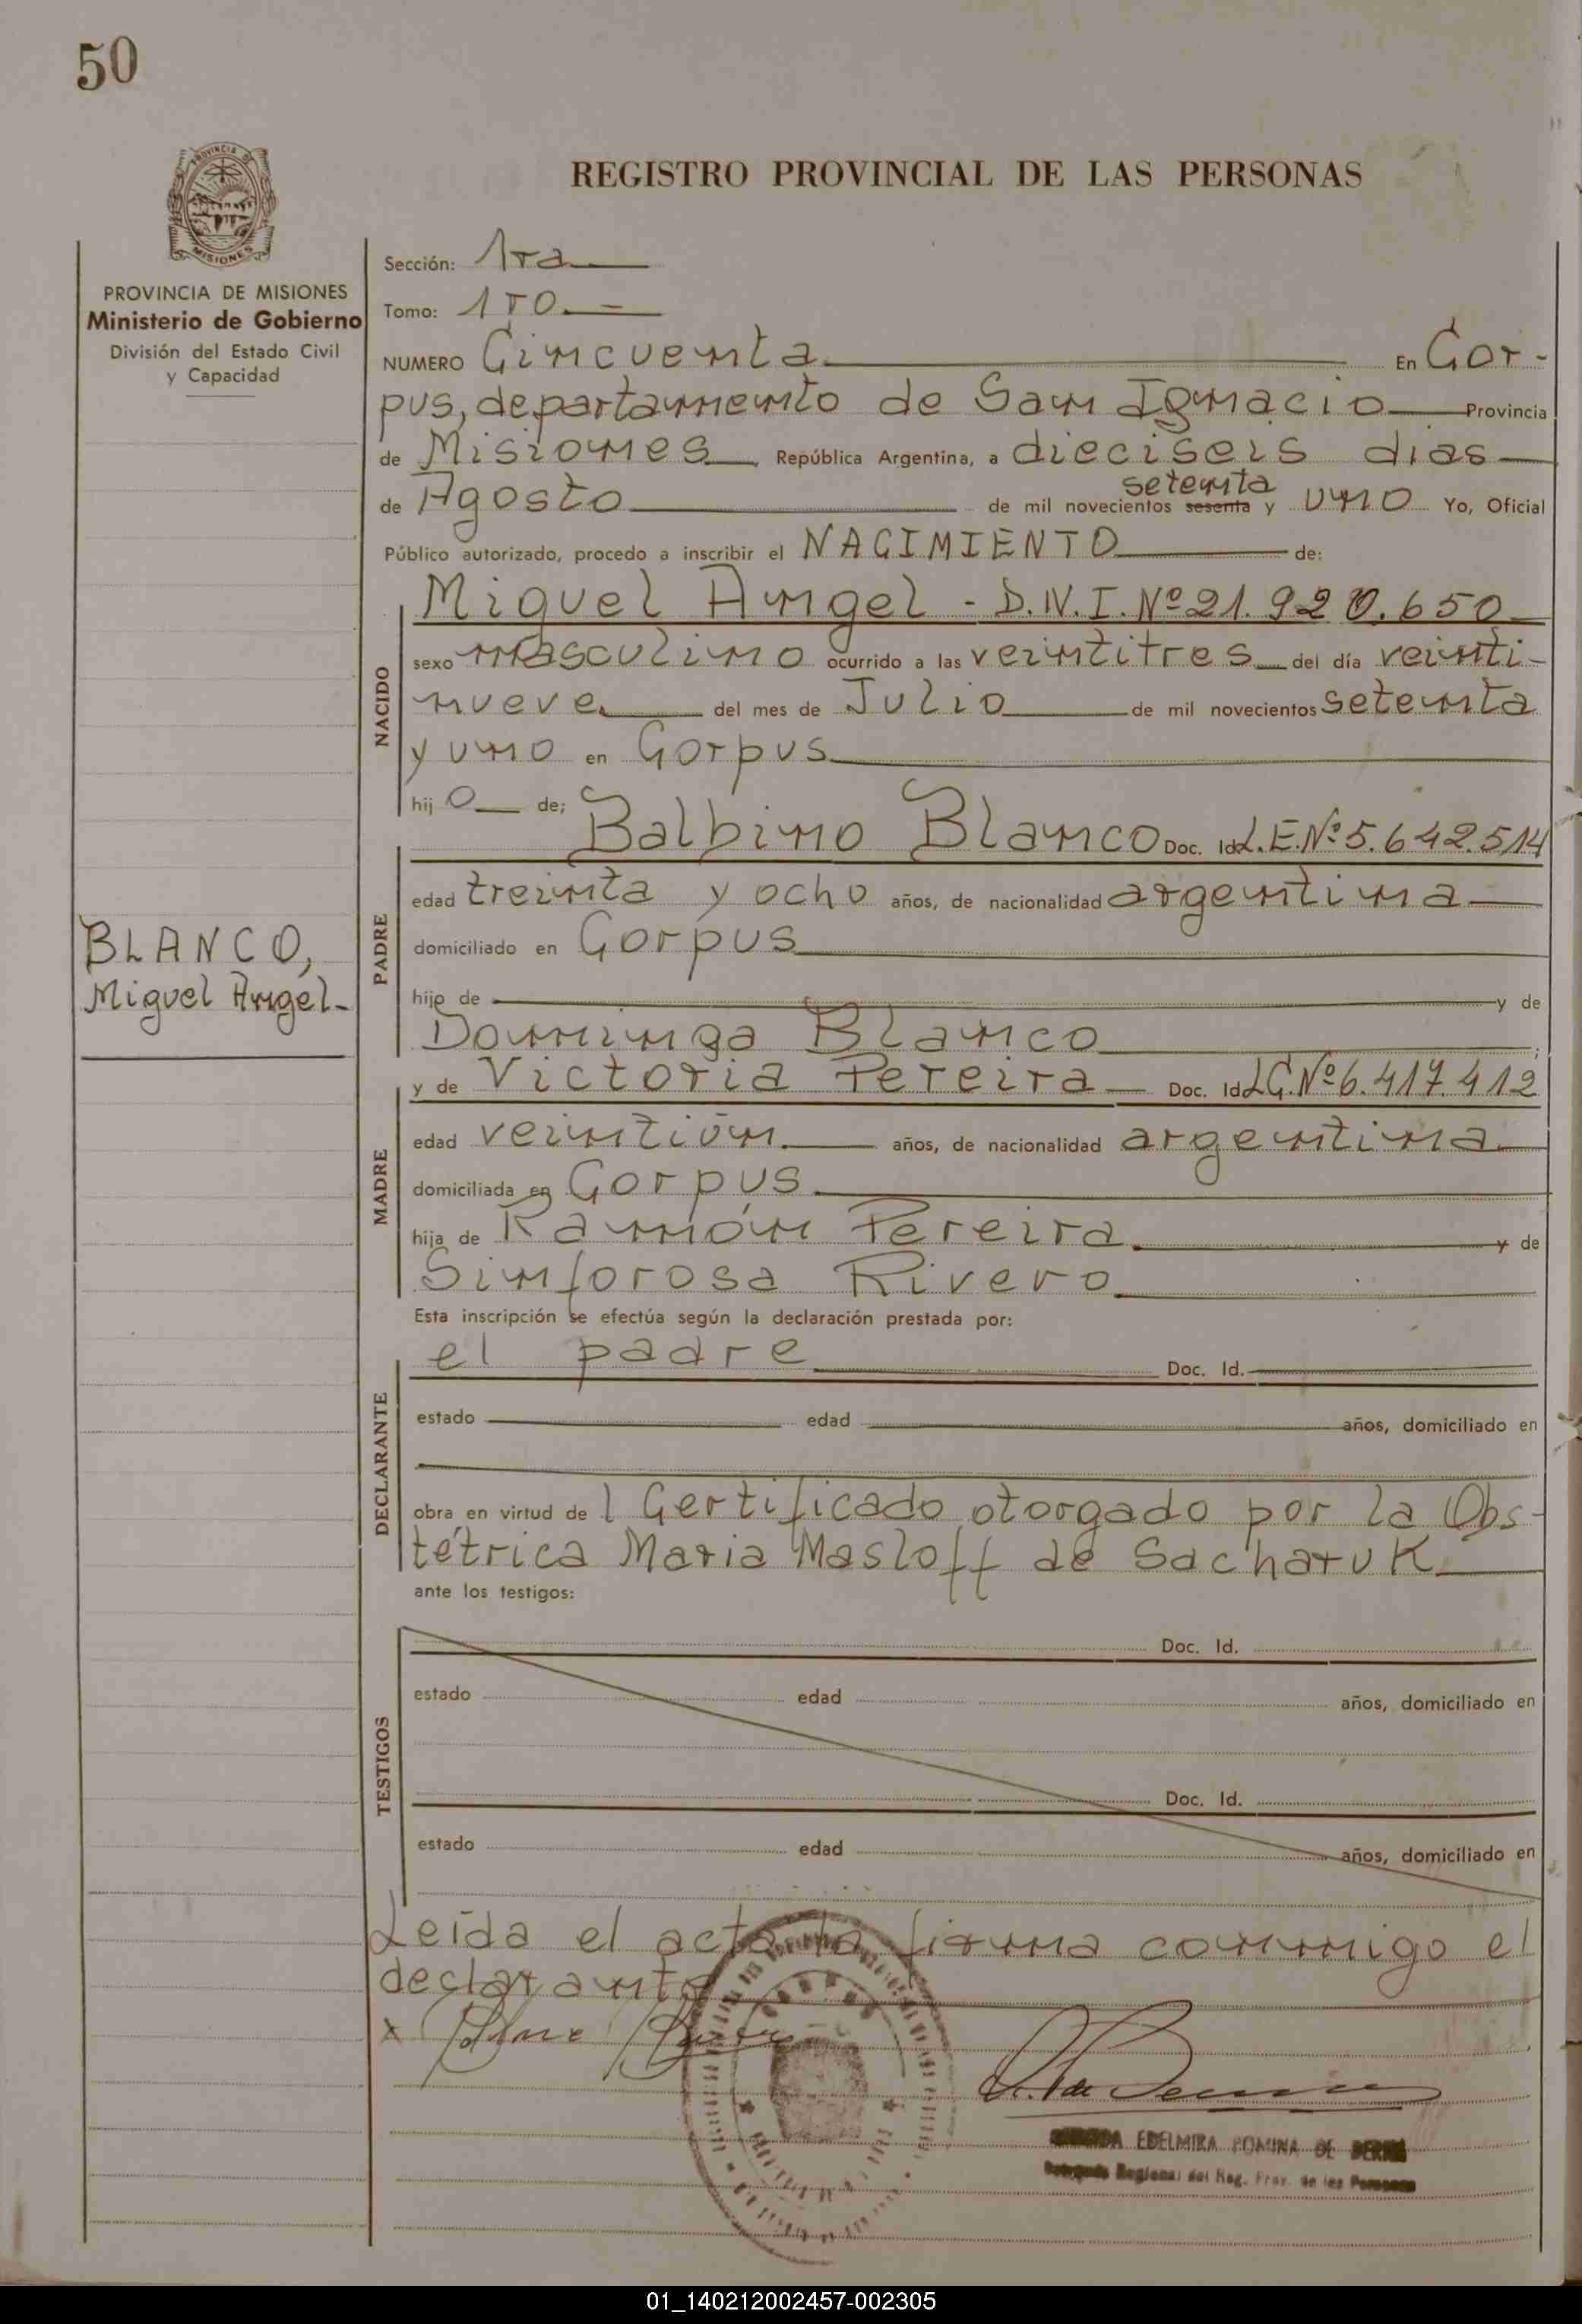 50
PROVINCIA DE
MISIONES
REGISTRO PROVINCIAL DE LAS PERSONAS
PROVINCIA DE MISIONES
Ministerio de Gobierno
División del Estado Civil
y Capacidad
Sección: 1ra
Tomo: 1ro.
NUMERO Cincuenta En Cor-
pus, departamento de San Ignacio Provincia
de Misiones República Argentina, a dieciseis dias
setenta
de Agosto de mil novecientos sesenta y uno Yo, Oficial
Público autorizado, procedo a inscribir el NACIMIENTO de:
Miguel Angel - D.N.I. Nº 21.920.650
NACIDO
sexo masculino ocurrido a las veintitres del día veinti-
nueve del mes de Julio de mil novecientos setenta
y uno en Corpus
hij o de;
PADRE
Balbino Blanco Doc. Id L.E.Nº 5.642.514
edad treinta y ocho años, de nacionalidad argentina
domiciliado en Corpus
hijo de y de
Dominga Blanco ;
BLANCO,
Miguel Angel-
MADRE
y de Victoria Pereira Doc. Id L.C.Nº 6.417.412
edad veintiún años, de nacionalidad argentina
domiciliada en Corpus
hija de Ramón Pereira y de
Sinforosa Rivero
Esta inscripción se efectúa según la declaración prestada por:
DECLARANTE
el padre Doc. Id.
estado edad años, domiciliado en
obra en virtud de l Certificado otorgado por la Obs-
tétrica Maria Masloff de Sacharuk
ante los testigos:
TESTIGOS
Doc. Id.
estado edad años, domiciliado en
Doc. Id.
estado edad años, domiciliado en
Leída el acta la firma conmigo el
declarante
x
EDELMIRA ROMINA DE
Regional del Reg. Prov. de las Personas
01_140212002457-002305